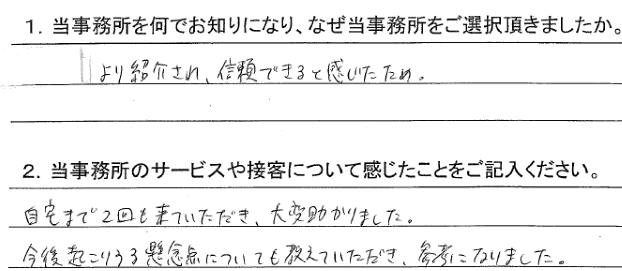 1. 当事務所を何でお知りになり、なぜ当事務所をご選択頂きましたか。
より紹介され、信頼できると感じたため。
2. 当事務所のサービスや接客について感じたことをご記入ください。
自宅まで2回も来ていただき、大変助かりました。
今後起こりうる懸念点についても教えていただき、参考になりました。